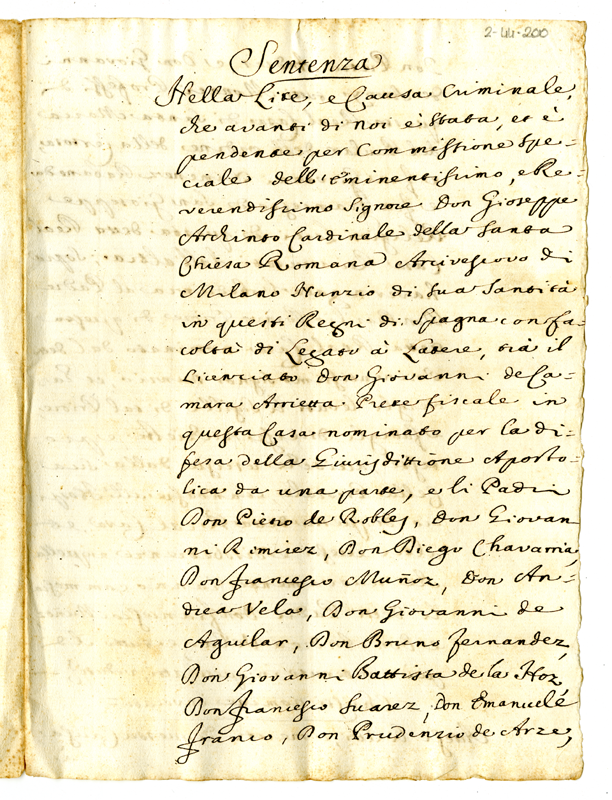 2-44-200
Sentenza
Nella Lite, e Causa Criminale,
che avanti di noi è stata, et è
pendente per Commissione Spe=
ciale dell'Eminentissimo, e Re=
verendissimo Signore Don Gioseppe
Archinto Cardinale della Santa
Chiesa Romana Arcivescovo di
Milano Nunzio di sua Santità
in questi Regni di Spagna con fa=
coltà di Legato à Latere, trà il
Licenciato Don Giovanni de Ca=
mara Arrietta Prete fiscale in
questa Casa nominato per la di=
fesa della Giurisdittione Aposto=
lica da una parte, e li Padri
Don Pietro de Robles, Don Giovan
ni Rimirez, Don Diego Chavarria,
Don Francesco Muñoz, Don An=
drea Vela, Don Giovanni de
Aguilar, Don Bruno Fernandez,
Don Giovanni Battista de la Hoz
Don Francesco Suarez, Don Emanuele
Franco, Don Prudenzio de Arze,